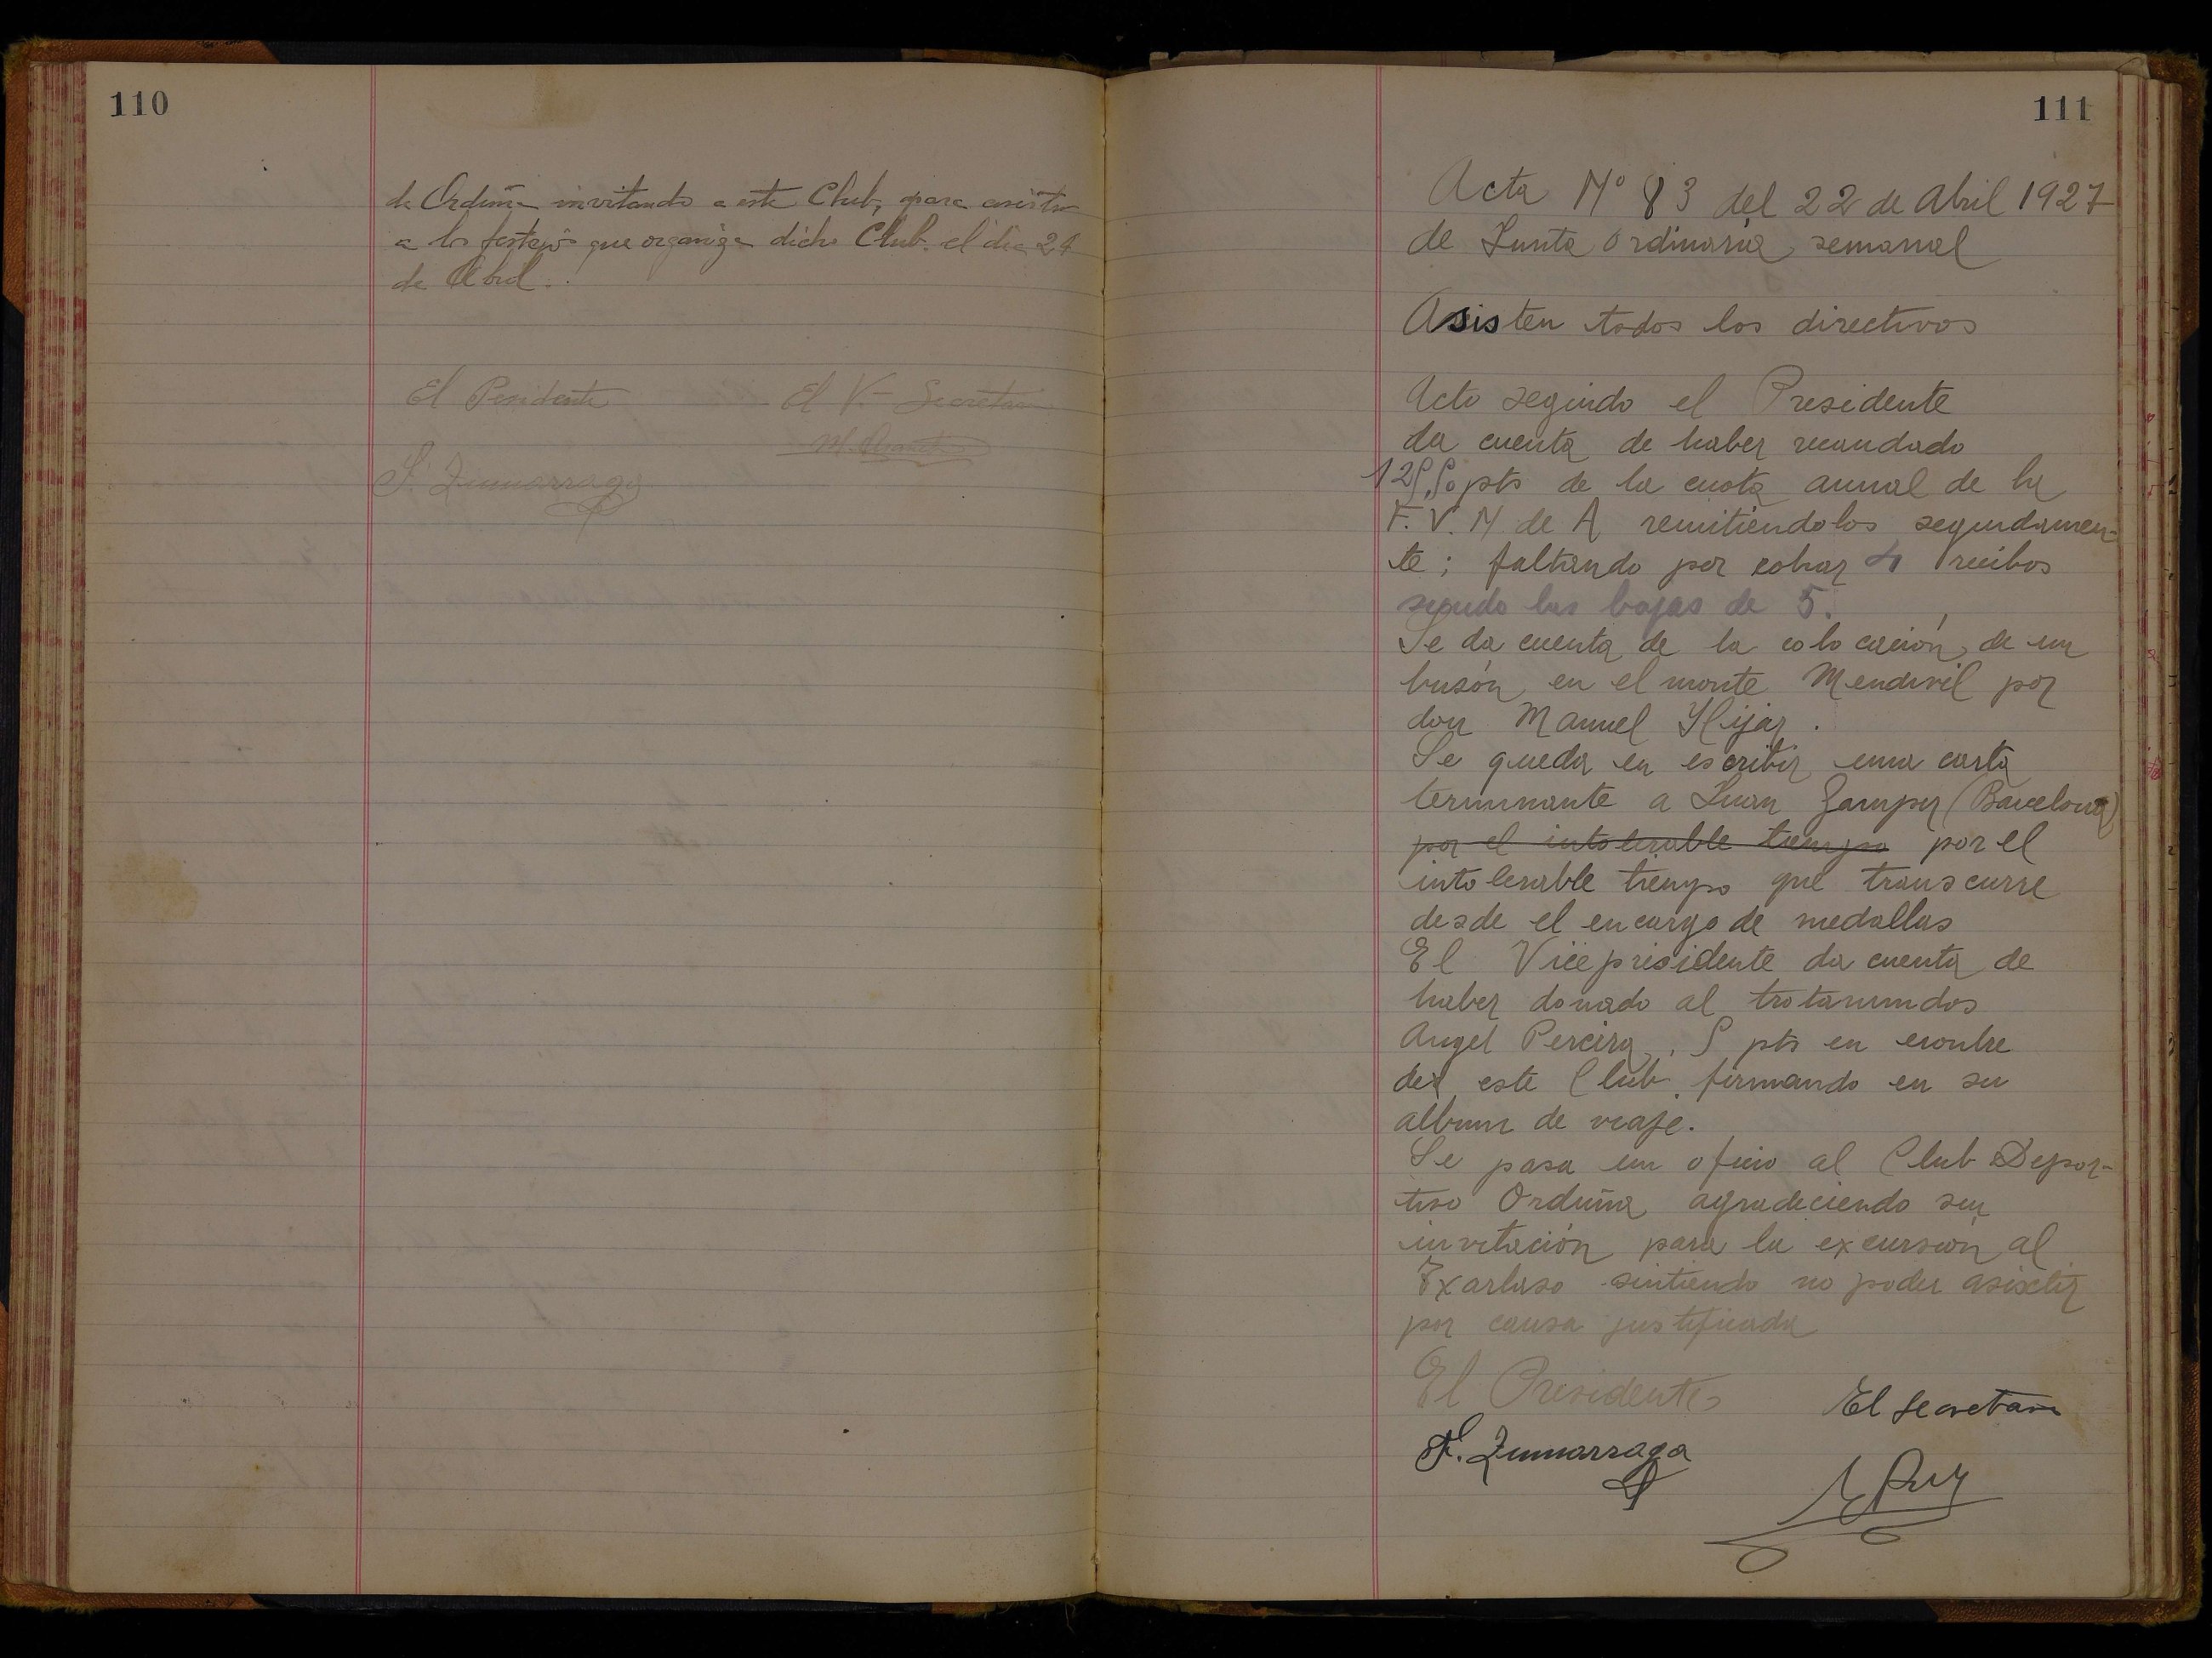 110
de Orduña invitando a este Club, para asistir
a los festejos que organiza dicho Club el dia 24
de Abril.
El Presidente
El V.- Secretario
F. Zumarraga
111
Acta Nº 83 del 22 de Abril 1927
de Junta Ordinaria semanal
Asisten todos los directivos
Acto seguido el Presidente
da cuenta de haber recaudado
125,50 pts de la cuota annual de la
F. V. N de A remitiendolos segundamen-
te; faltando por cobrar 4 recibos
siendo las bajas de 5.
Se da cuenta de la colocación de un
busón en el monte Mendivil por
don Manuel Hijar.
Se queda en escribir una carta
terminante a Juan (Barcelona)
por el intolerable tiempo por el
intolerable tiempo que transcurre
desde el encargo de medallas
El Vicepresidente da cuenta de
haber donado al trotamundos
Angel Pereira, 5 pts en
de este Club firmando en su
album de viaje.
Se pasa un oficio al Club Depor-
tivo Orduña agradeciendo su
invitación para la excursión al
Txarlaso sintiendo no poder asistir
por causa justificada
El Presidente
El Secretario
F. Zumarraga